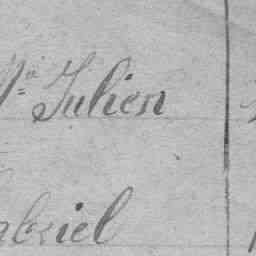 Julien
abriel